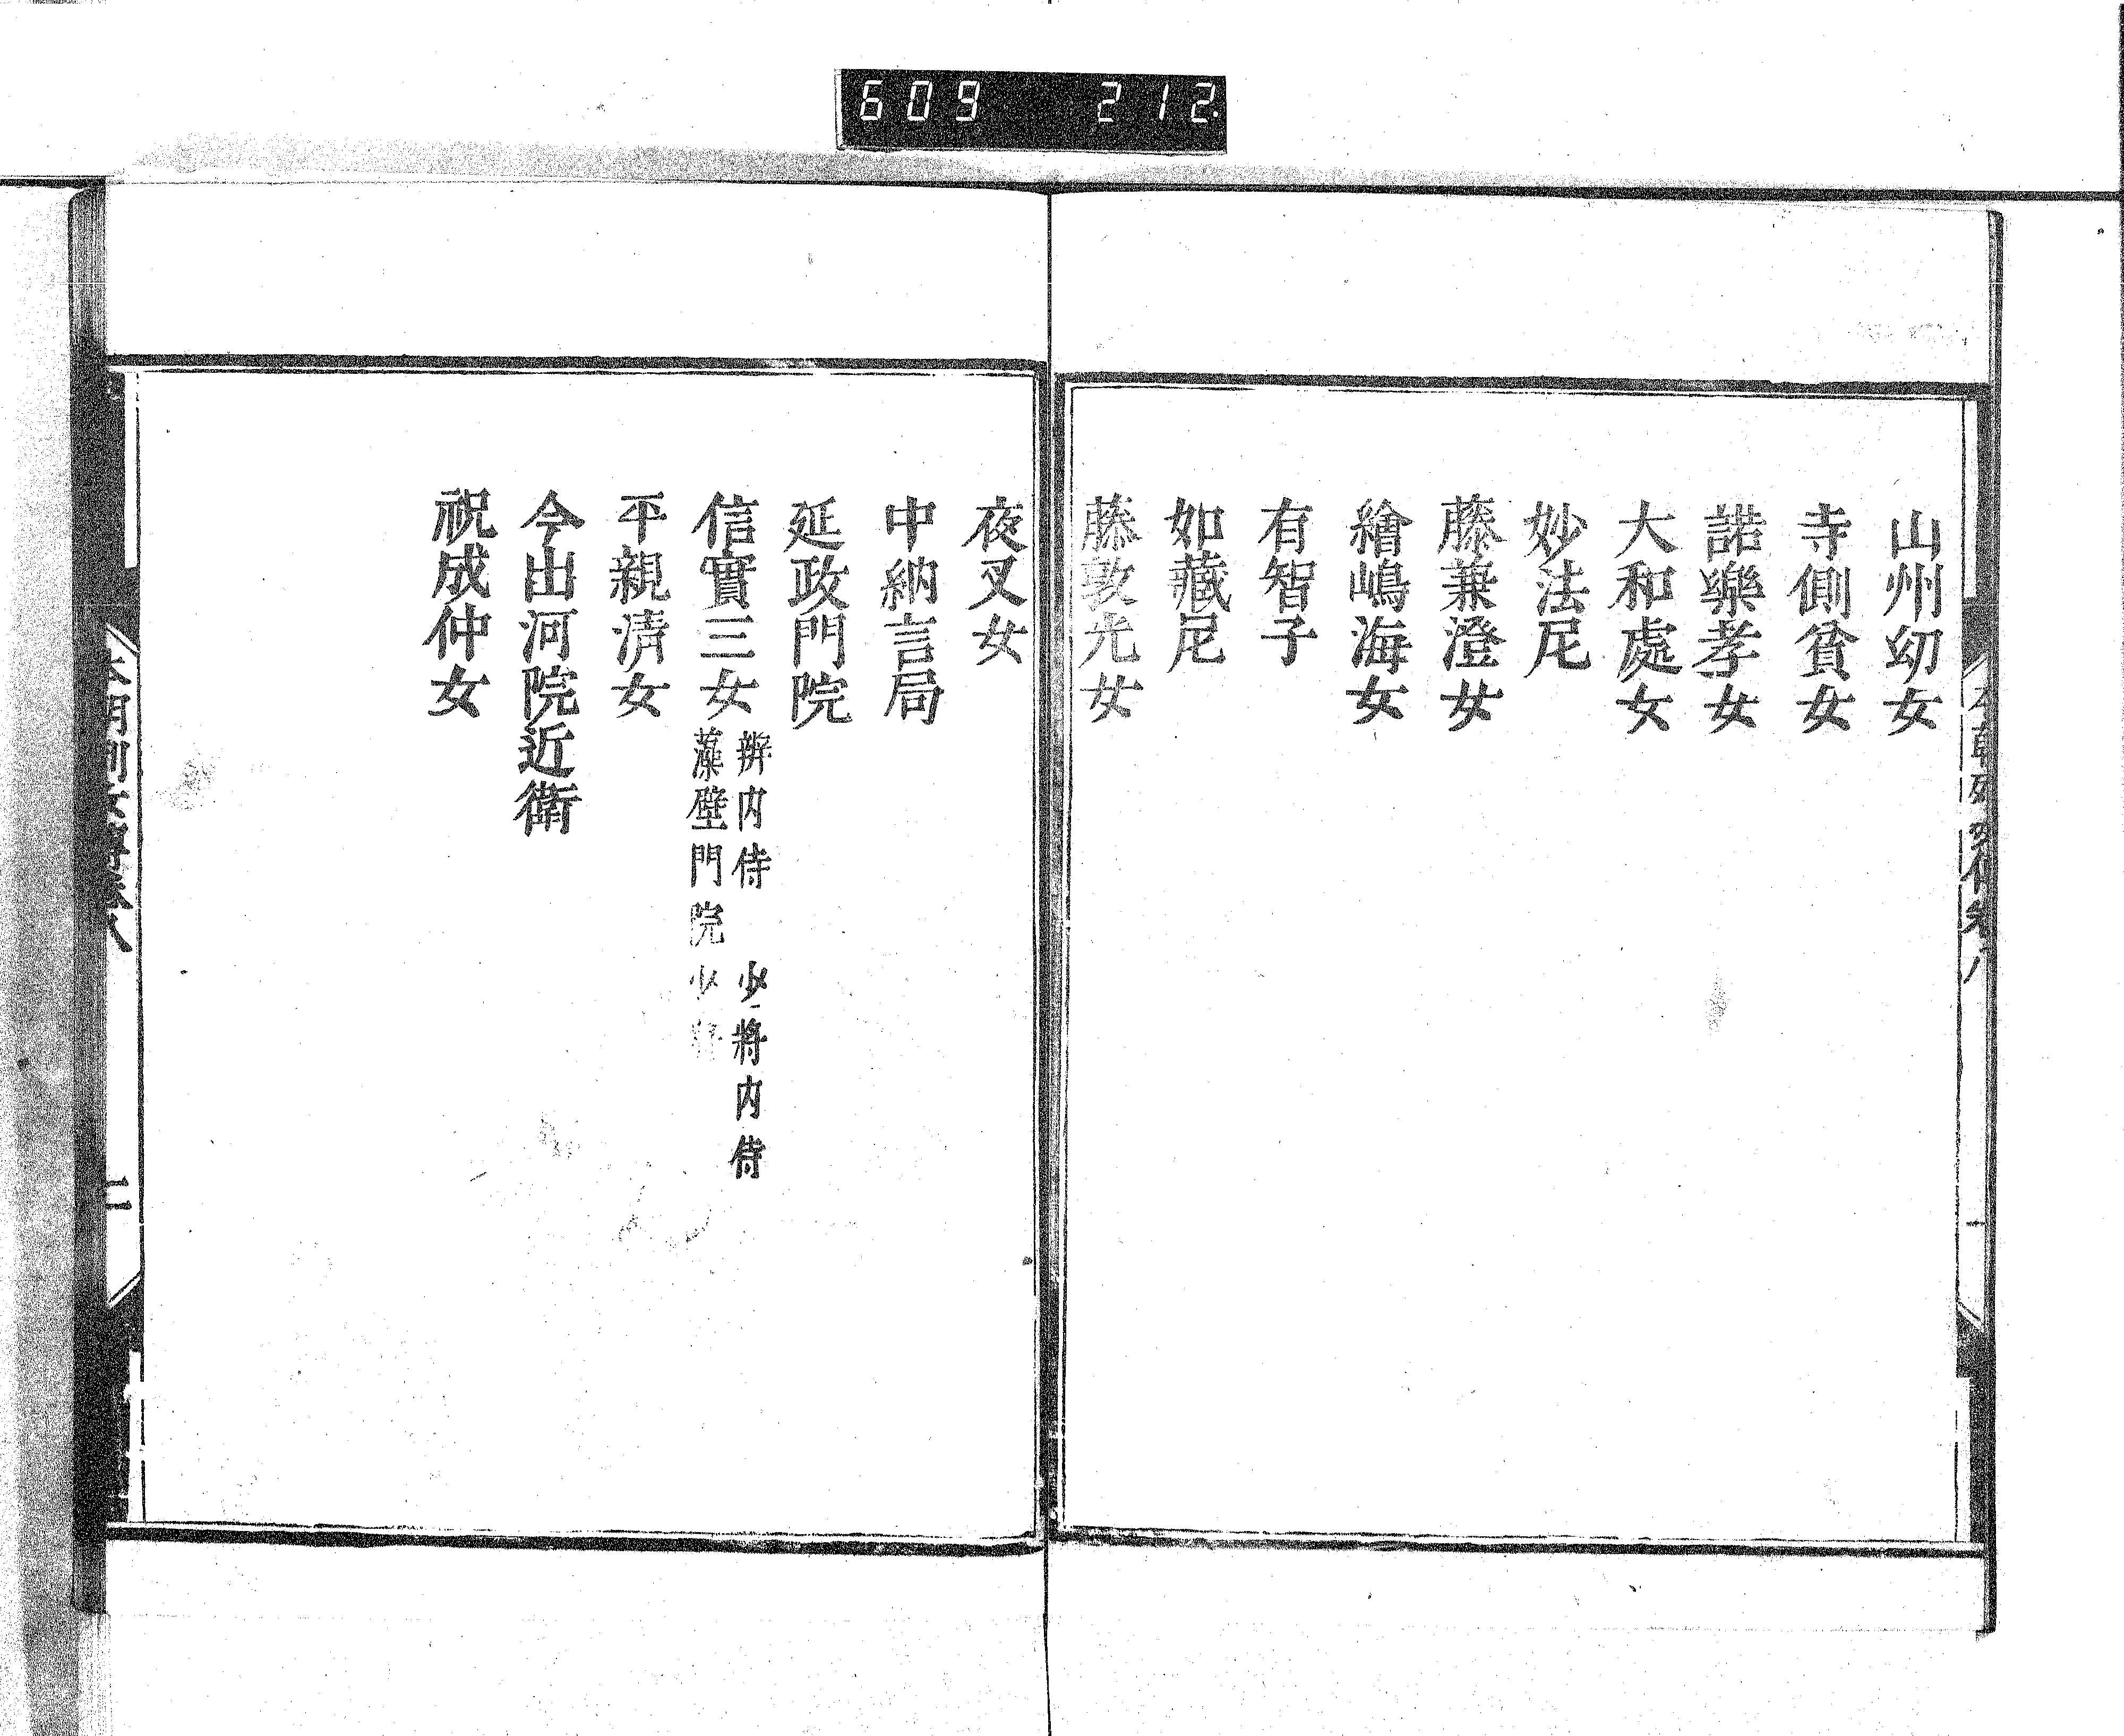 609 212
山州幼女
寺側貧女
諾樂孝女
大和處女
妙法尼
藤兼澄女
繪嶋海女
有智子
如藏尼
藤敦光女
夜叉女
中納言局
延政門院
信實三女
辨内侍 少將内侍
藻壁門院少將
平親清女
今出河院近衛
祝成仲女
二